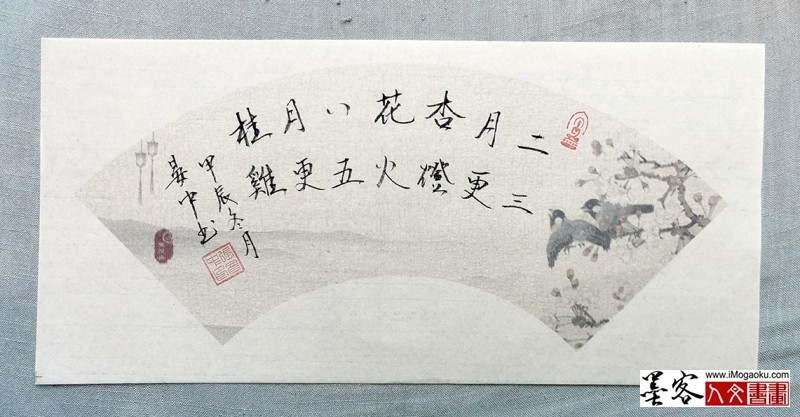 二月杏花八月桂
三更燈火五更雞
甲辰冬月
中书
www.iMogaoku.com
墨客人文書畫